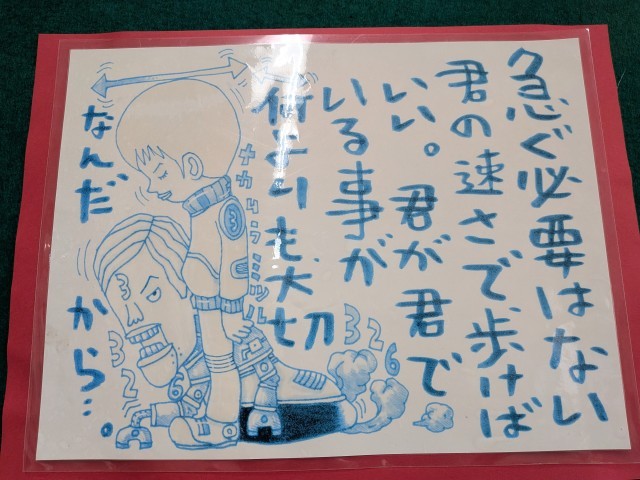 急ぐ必要はない
君の速さで歩けば
いい。君が君で
いる事が
何よりも大切
なんだ
から…。
ナカムラミツル
326
3
3
326